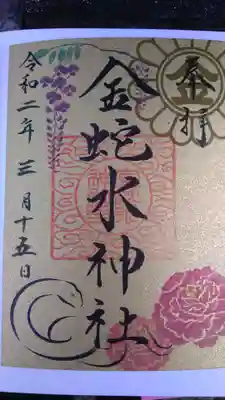 奉拝
金蛇水神社
令和二年三月十五日